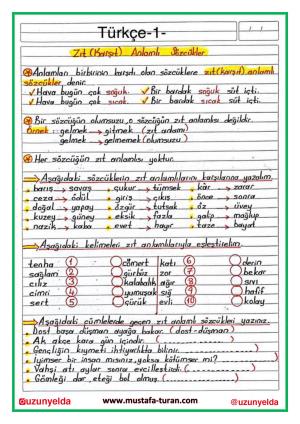 Türkçe-1-
/ /
Zıt (Karşıt) Anlamlı Sözcükler
Anlamları birbirinin karşıtı olan sözcüklere zıt (karşıt) anlamlı
sözcükler denir.
✓Hava bugün çok soğuk. ✓Bir bardak soğuk süt içti.
✓Hava bugün çok sıcak. ✓Bir bardak sıcak süt içti.
Bir sözcüğün olumsuzu, o sözcüğün zıt anlamlısı değildir.
Örnek: gelmek → gitmek (zıt
gelmek → gelmemek (olumsuzu)
Her sözcüğün zıt anlamlısı yoktur.
Aşağıdaki sözcüklerin zıt anlamlılarını karşılarına yazalım.
barış → savaş çukur → tümsek kâr → zarar
ceza → ödül giriş → çıkış önce → sonra
doğal → yapay özgür → tutsak öz → üvey
kuzey → güney eksik → fazla galip → mağlup
nazik → kaba evet → hayır taze → bayat
Aşağıdaki kelimeleri zıt anlamlılarıyla eşleştirelim.
tenha 1 cömert katı 6 derin
sağlam 2 gürbüz zor 7 bekar
cılız 3 kalabalık ağır 8 sıvı
cimri 4 yumuşak sığ 9 hafif
sert 5 çürük evli 10 kolay
Aşağıdaki cümlelerde geçen zıt anlamlı sözcükleri yazınız.
Dost başa düşman ayağa bakar. (dost-düşman)
Ak akçe kara gün içindir. (
Gençliğin kıymeti ihtiyarlıkta bilinir.
İyimser bir insan mısınız yoksa kötümser mi? (
Vahşi atı aylar sonra evcilleştirdi. (
Gömleği dar, eteği bol olmuş. (
@uzunyelda www.mustafa-turan.com @uzunyelda